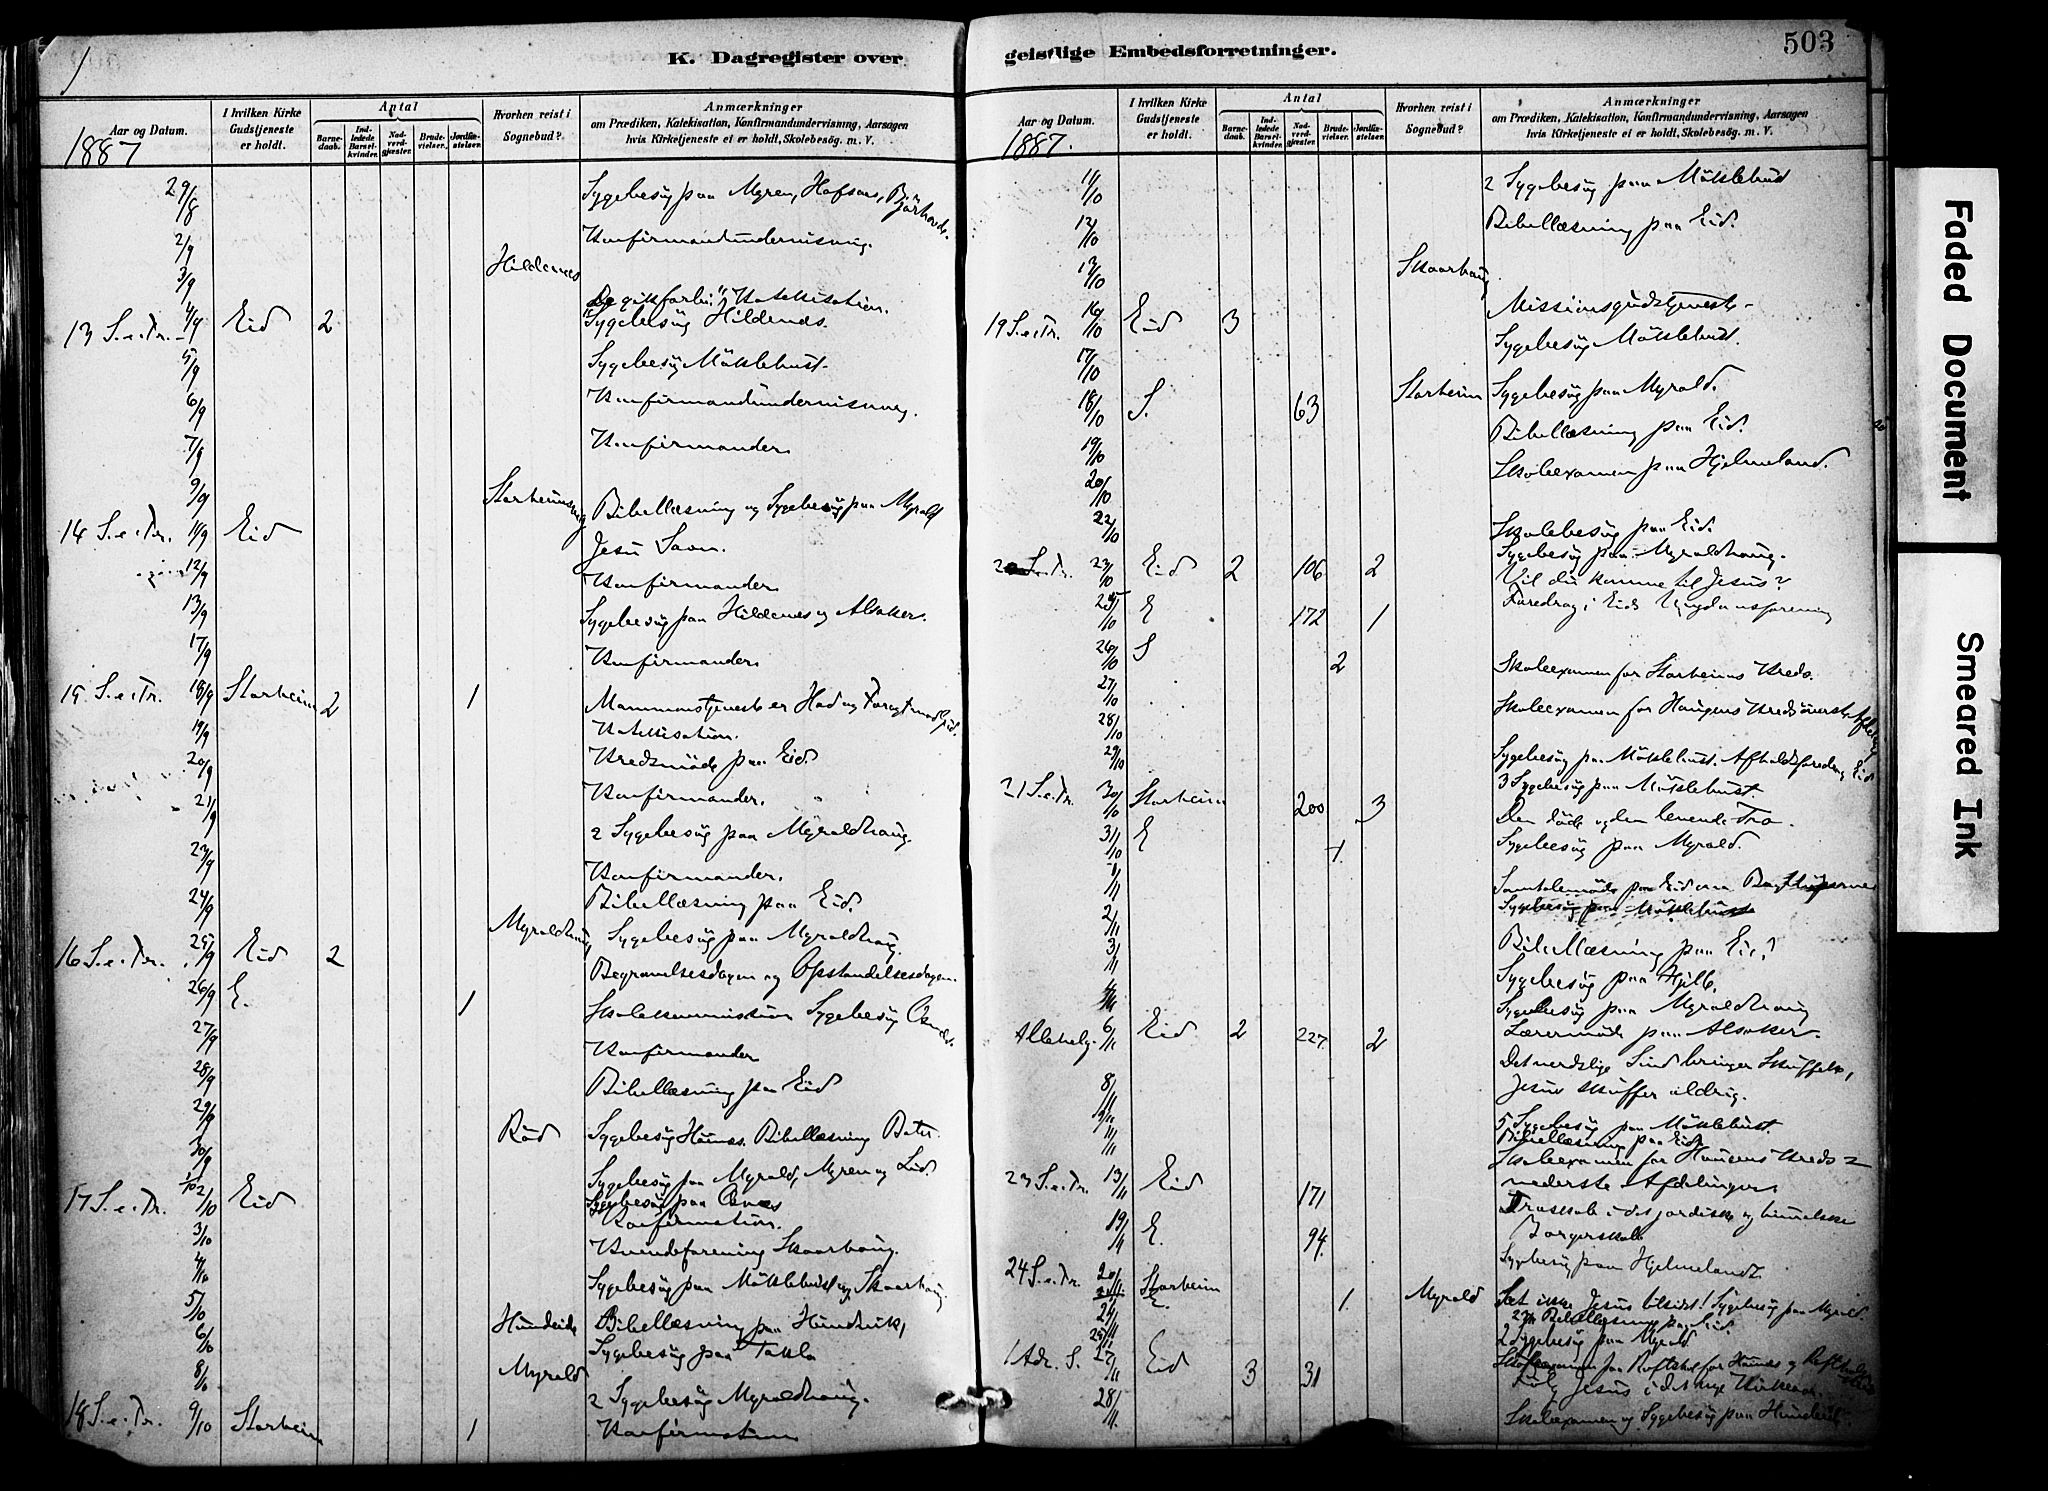 503
K. Dagregister over
geistlige Embedsforretninger.
Aar og Datum.
I hvilken Kirke Gudstjeneste er holdt.
Antal
Barnedaab.
Indledede Barselkvinder.
Nadverdgjæster.
Brudevielser.
Jordfæstelser.
Hvorhen reist i Sognebud?
Anmærkninger
om Prædiken, Katekisation, Konfirmandundervisning, Aarsagen
hvis Kirketjeneste et er holdt, Skolebesög. m. V.
1887
29/8 Sygebesög paa Myren, Hafsaas,
2/9 Konfirmandundervisning.
3/9 Hildenes
13 S.e.Tr. 4/9 Eid 2 Katekisation.
Sygebesög Hildenes.
5/9 Sygebesög Möklebust.
6/9 Konfirmandundervisning.
7/9 Konfirmander
9/9 Bibellæsning og Sygebesög paa Myrold
14 S.e.Tr. 11/9 Eid Jesu Savn.
12/9 Konfirmander
13/9 Sygebesög paa Hildenes og Alsaker.
17/9 Konfirmander.
15 S.e.Tr. 18/9 Starheim 2 1 Mammonstjeneste er Had og Foragt mod Gud.
19/9 Katekisation.
20/9 Kredsmöde paa Eid
21/9 Konfirmander.
2 Sygebesög paa Myroldhaug.
23/9 Konfirmander.
24/9 Bibellæsning paa Eid.
16 S.e.Tr. 25/9 Eid 2 Myroldhaug Sygebesög paa Myroldhaug.
Begravelsesdagen og Opstandelsesdagen.
26/9 E. 1 Skolekommission Sygebesög
27/9 Konfirmander
28/9 Bibellæsning paa Eid
29/9 Röd Sygebesög Hunes. Bibellæsning
30/9 Sygebesög paa Myrold, Myren og
17 S.e.Tr. 2/10 Eid Sygebesög paa
Konfirmation.
3/10 Kvindeforening Skaarhaug.
4/10 Sygebesög paa Möklebust og Skaarhaug
5/10 Hundeide Bibellæsning paa
6/10 Sygebesög paa Takle
8/10 Myrold 2 Sygebesög Myroldhaug.
18 S.e.Tr. 9/10 Starheim 1 Konfirmation
Aar og Datum.
I hvilken Kirke Gudstjeneste er holdt.
Antal
Barnedaab.
Indledede Barselkvinder.
Nadverdgjæster.
Brudevielser.
Jordfæstelser.
Hvorhen reist i Sognebud?
Anmærkninger
om Prædiken, Katekisation, Konfirmandundervisning, Aarsagen
hvis Kirketjeneste et er holdt, Skolebesög. m. V.
1887.
11/10 2 Sygebesög paa Möklebust
12/10 Bibellæsning paa Eid.
13/10 Skaarhaug
19 S.e.Tr. 16/10 Eid 3 Missionsgudstjeneste
17/10 Sygebesög Möklebust.
18/10 S. 63 Starheim Sygebesög paa Myrold.
19/10 Bibellæsning paa Eid.
20/10 Skoleexamen paa Hjelmeland.
22/10 Skolebesög paa Eid.
Sygebesög paa Myroldhaug.
S.e.Tr. 23/10 Eid 2 106 2 Vil du komme til Jesus?
25/10 E 172 1 Foredrag i Eids Ungdomsforening
26/10 S 2 Skoleexamen for Starheims Kreds.
27/10 Skoleexamen for Haugens Kreds
28/10
29/10 Sygebesög paa Möklebust. Afholdsforedrag Eid
21 S.e.Tr. 30/10 Starheim 200 3 3 Sygebesög paa Möklebust.
Den döde og den levende Tro.
31/10 E 1. Sygebesög paa Myrold.
1/11 Samtalemöde paa Eid
2/11 Sygebesög paa Möklebust
3/11 Bibellæsning paa Eid
Sygebesög paa Hjelle.
Sygebesög paa Myroldhaug
Lærermöde paa Alsaker.
Allehelg. 6/11 Eid 2 227. 2 Det verdslige Sind bringer Skuffelse,
8/11 Jesus skuffer aldrig.
5 Sygebesög paa Möklebust.
Bibellæsning paa Eid
11/11 Skoleexamen for Haugens Kreds 2
nederste Afdelinger
23 S.e.Tr. 13/11 Eid 171 Troskab i det jordiske og himmelske
Borgerskab
19/11 E. 94. Sygebesög paa Hjelmeland.
24 S.e.Tr. 20/11 Starheim Myrold Sæt ikke Jesus tilside! Sygebesög paa Myrold.
24/11 E. 1. Bibellæsning paa Eid.
2 Sygebesög paa Myrold.
1 Adv. S. 27/11 Eid 3 31 Fölg Jesus i det nye Kirkeaar.
28/11 Skoleexamen og Sygebesög paa
Faded Document
Smeared Ink